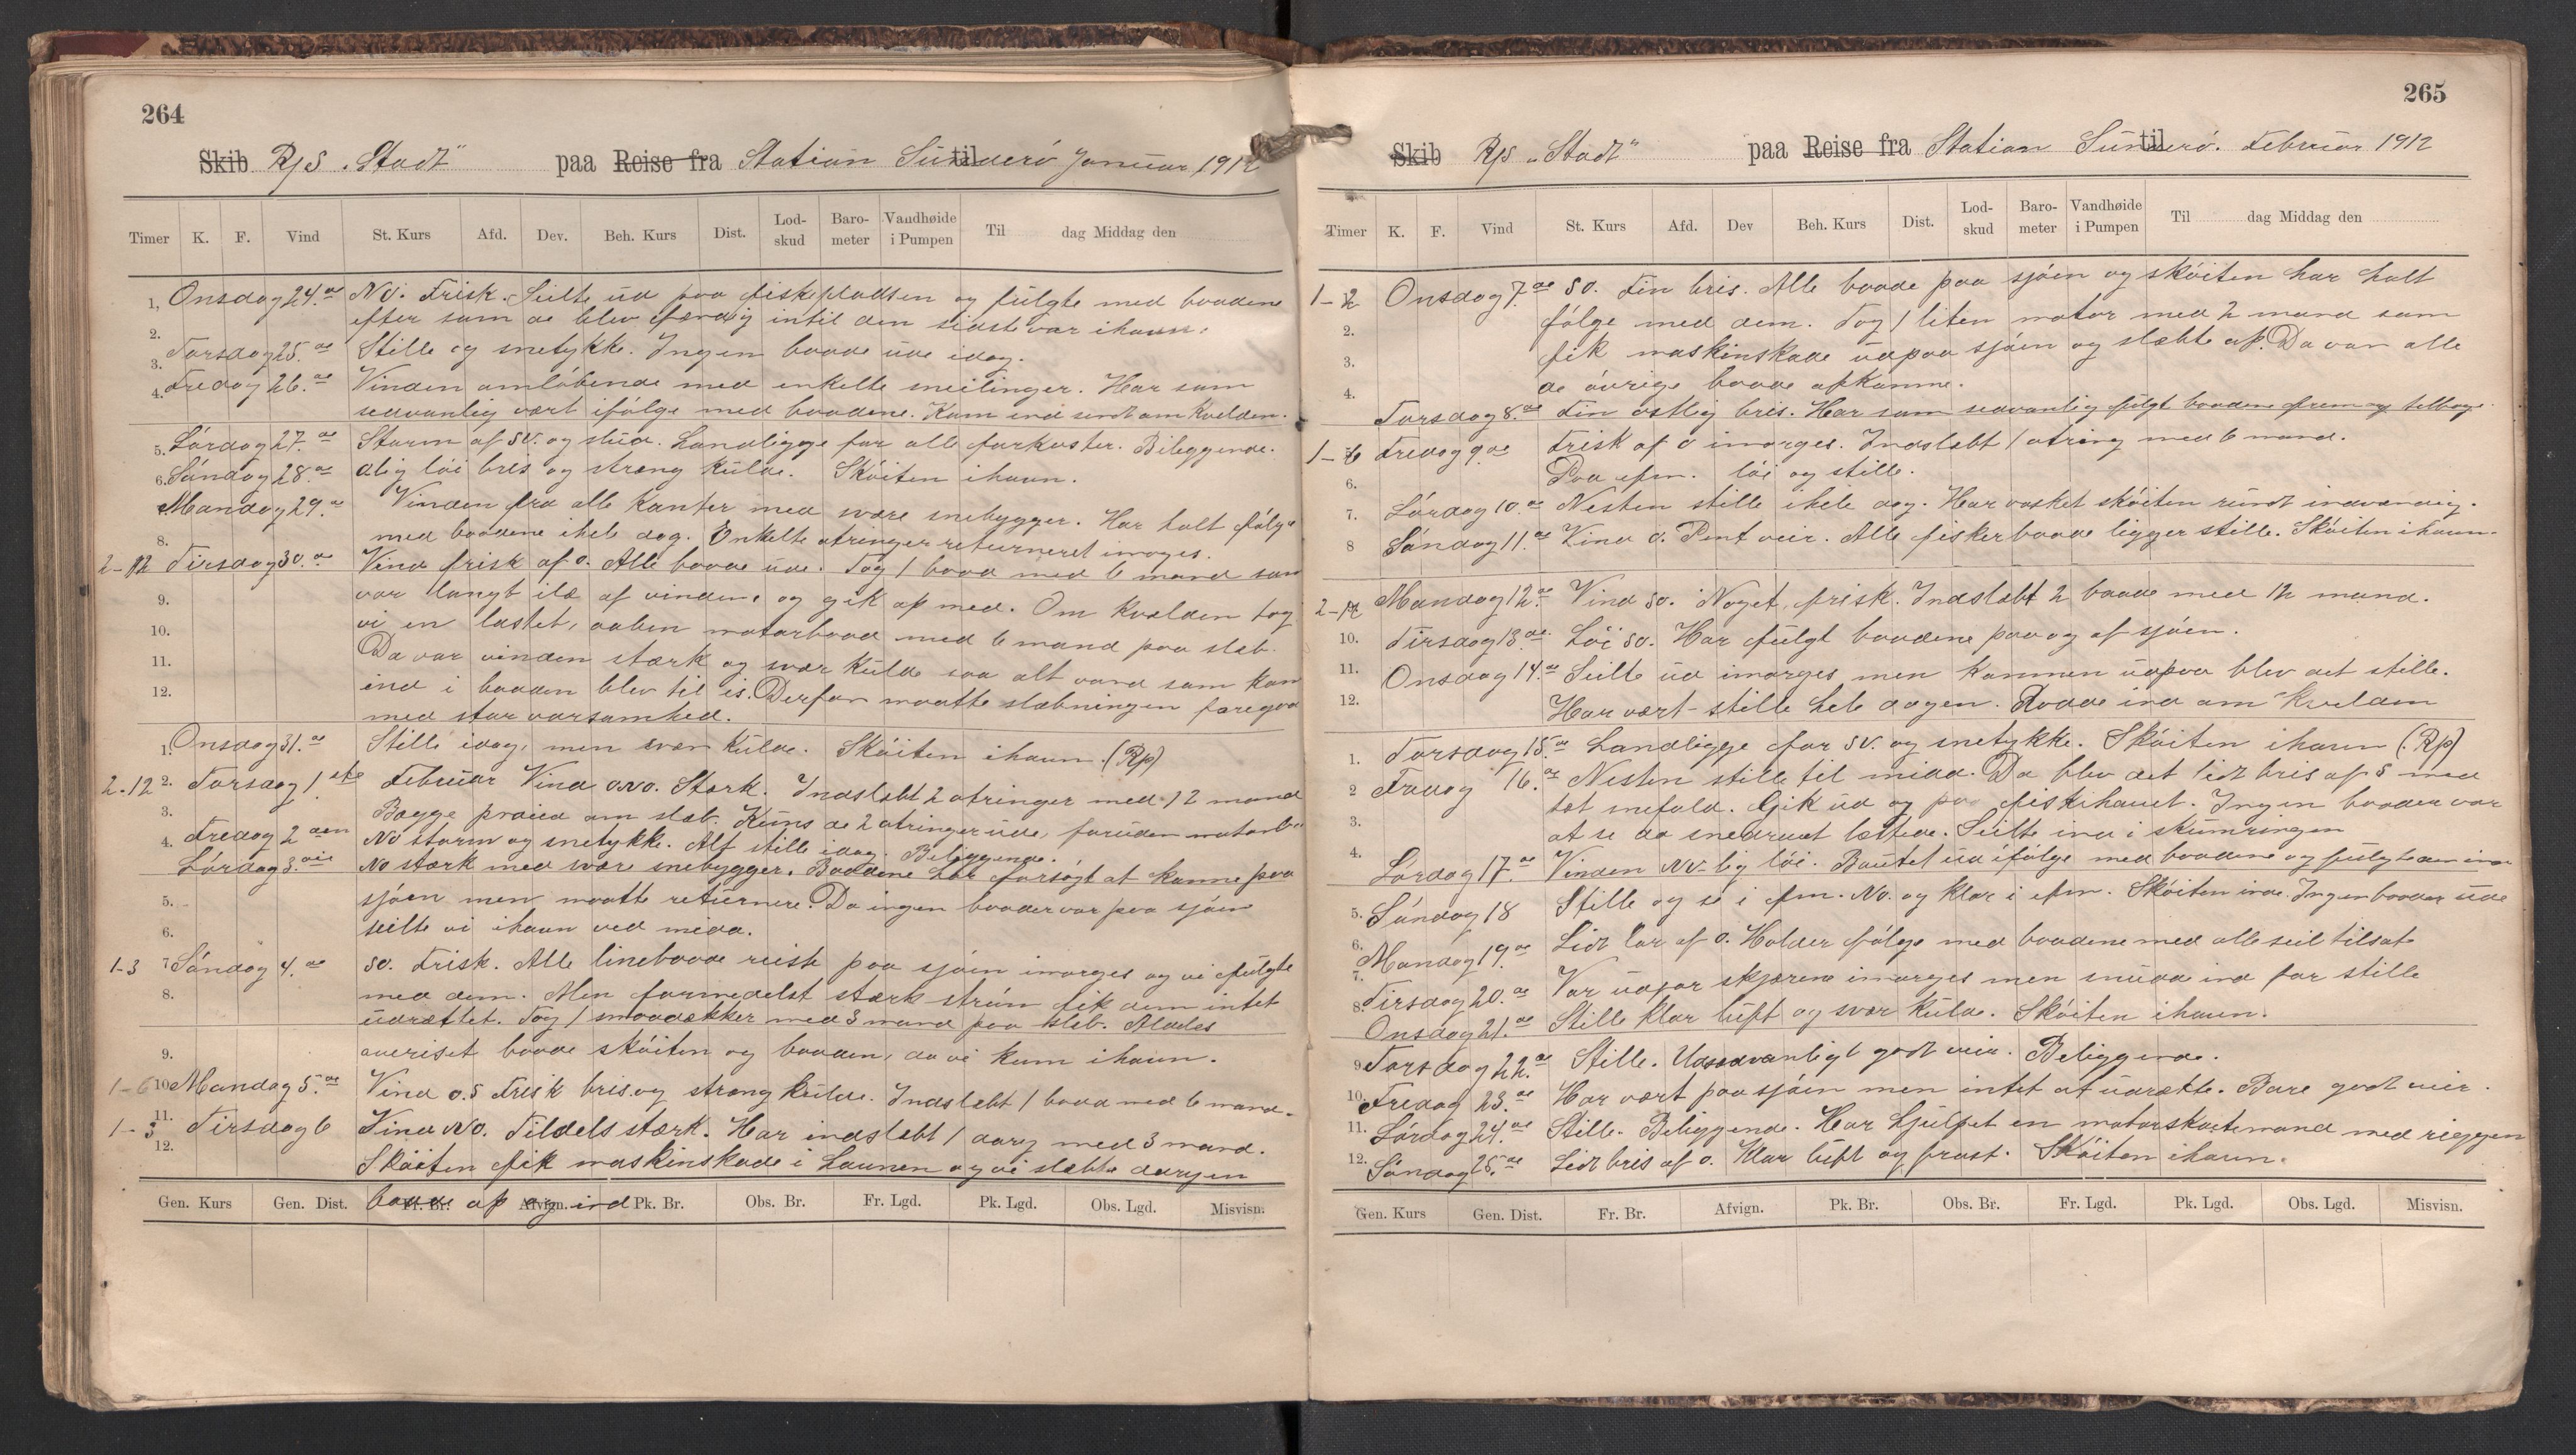 264
Skib R/S „Stadt" paa Reise fra Station Sunderö til Januar 1912
Timer K. F. Vind St. Kurs Afd. Dev. Beh. Kurs Dist. Lod-skud Baro-meter Vandhøide i Pumpen Til dag Middag den
1. Onsdag 24.de NO. Frisk. Seilte ud paa fiskepladsen og fulgte med baadene
efter som de blev færdig intil den sidste var ihavn.
2.
3. Torsdag 25.de Stille og snetykke. Ingen baade ude idag.
4. Fredag 26.de Vinden omløbende med enkelte sneilinger. Har som
sedvanlig vært ifølge med baadene. Kom ind sent om kvelden.
5. Lørdag 27.de Storm af SV. og slud. Landligge for alle farkoster. Biliggende.
6. Søndag 28.de Ølig löi bris og streng kulde. Skøiten ihavn.
Mandag 29.de Vinden fra alle kanter med svære snebygger. Har holt følge
8. med baadene ihele dag. Enkelte otringer returneret imorges.
2-12 Tirsdag 30.de Vind frisk af O. Alle baade ude. Tog 1 baad med 6 mand som
9. var langt ilæ af vinden, og gik op med. Om kvelden tog
10. vi en lastet, aaben motorbaad med 6 mand paa slæb.
11. Da var vinden stærk og svær kulde saa alt vand som kom
12. ind i baaden blev til is. Derfor maatte slæbningen foregaa
med stor varsomhed.
1. Onsdag 31.de Stille idag, men svær kulde. Skøiten ihavn. (Rp)
2-12 2. Torsdag 1ste Februar Vind ONO. Stærk. Indslæbt 2 otringer med 12 mand
3. Begge praied om slæb. Kuns de 2 otringer ude, foruden motorb.
4. Fredag 2den NO storm og snetykke. Alt stille idag. Biliggende.
Lørdag 3.die NO stærk med svære snebygger. Baadene har forsøgt at komme paa
5. sjøen men maatte returnere. Da ingen baader var paa sjøen
6. seilte vi ihavn ved midd.
1-3 7 Søndag 4.de SO. Frisk. Alle linebaade reiste paa sjøen imorges og vi fulgte
8. med dem. Men formedelst stærk strøm fik dem intet
udrættet. Tog 1 smaadækker med 3 mand paa slæb.
9. averiset baade skøiten og baaden, da vi kom ihavn.
1-6 10 Mandag 5.de Vind O.S Frisk bris og streng kulde. Indslæbt 1 baad med 6 mand.
1-3 11. Tirsdag 6 Vind NO. Tildels stærk. Har indslæbt 1 dorry med 3 mand.
12. Skøiten fik maskinskade i Launen og vi slæbte doryen
Gen. Kurs Gen. Dist. Fr. Br. Afvign. Pk. Br. Obs. Br. Fr. Lgd. Pk. Lgd. Obs. Lgd. Misvisn.
baade op og ind
265
Skib R/S „Stadt" paa Reise fra Station Sunderö. til Februar 1912
Timer K. F. Vind St. Kurs Afd. Dev Beh. Kurs Dist. Lod-skud Baro-meter Vandhøide i Pumpen Til dag Middag den
1-2 Onsdag 7.de SO. Fin bris. Alle baade paa sjøen og skøiten har holt
2. følge med dem. Tog 1 liten motor med 2 mand som
3. fik maskinskade udpaa sjøen og slæbte op. Da var alle
4. de øvrige baade opkomne.
Torsdag 8.de Fin østlig bris. Har som sedvanlig fulgt baadene frem og tilbage.
1-6 Fredag 9de Frisk af O imorges. Indslæbt 1 otring med 6 mand.
6. Paa efm. löi og stille.
7. Lørdag 10.de Nesten stille ihele dag. Har vasket skøiten rundt indvendig.
8 Søndag 11.de Vind O. Pent veir. Alle fiskerbaade ligger stille. Skøiten ihavn.
2-12 Mandag 12.de Vind SO. Noget frisk. Indslæbt 2 baade med 12 mand.
10. Tirsdag 13.de Löi SO. Har fulgt baadene paa og af sjøen.
11. Onsdag 14.de Seilte ud imorges, men kommen udpaa blev det stille.
12. Har vært stille hele dagen. Rodde ind om kvelden
1. Torsdag 15.de Landligge for SV. og snetykke. Skøiten ihavn (Rp)
2 Fredag 16.de Nesten stille til midd. Da blev det lidt bris af S med
3. tæt snefald. Gik ud og paa fiskihavet. Ingen baader var
4. at se da snedrevet lettede. Seilte ind i skumringen
Lørdag 17.de Vinden NV-lig löi. Bautet ud ifølge med baadene og fulgte dem ind
5. Søndag 18 Stille og se i fm. NO. og klar i efm. Skøiten inde. Ingen baader ude
6. Mandag 19.de Lidt lar af O. Holder følge med baadene med alle seil tilsat
7.
8. Tirsdag 20.de Var udfor skjærene imorges men snudde ind for stille
Onsdag 21.de Stille klar luft og svær kulde. Skøiten ihavn.
9 Torsdag 22.de Stille. Usedvanligt godt veir. Beliggende.
10. Fredag 23.de Har vært paa sjøen men intet at udrætte. Bare godt veir.
11. Lørdag 24.de Stille. Beliggende. Har hjulpet en motorskøitemand med riggen
12. Søndag 25.de Lidt bris af O. Klar luft og frost. Skøiten ihavn.
Gen. Kurs Gen. Dist. Fr. Br. Afvign. Pk. Br. Obs. Br. Fr. Lgd. Pk. Lgd. Obs. Lgd. Misvisn.